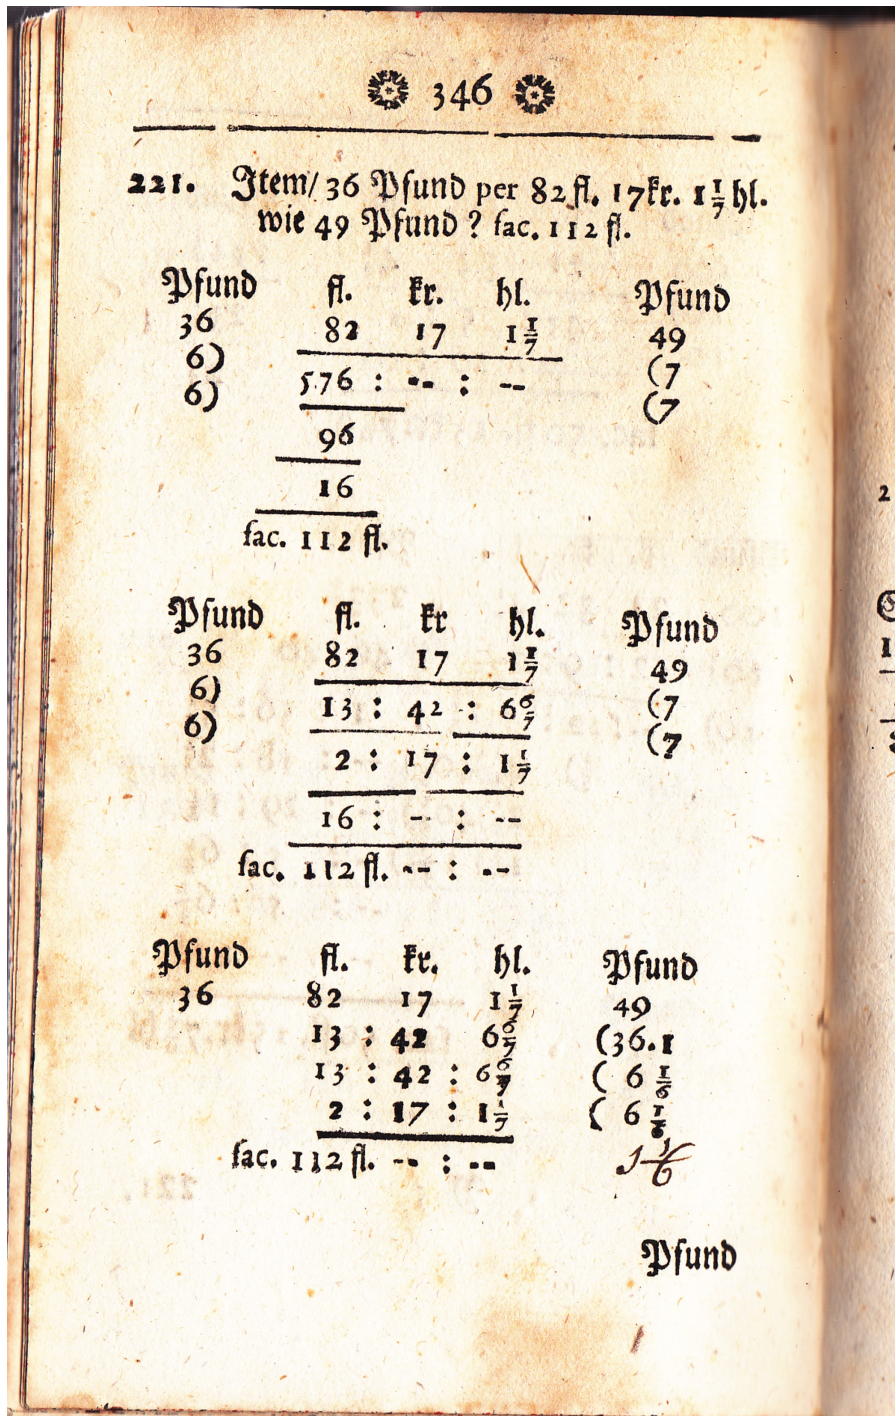 346
221. Item/ 36 Pfund per 82 fl. 17kr. 1 1/7 hl.
wie 49 Pfund? fac. 112 fl.
Pfund fl. kr. hl. Pfund
36 82 17 1 1/7 49
6) 576 : -- : -- (7
6) (7
96
16
fac. 112 fl.
Pfund fl. kr hl. Pfund
36 82 17 1 1/7 49
6) 13 : 42 : 6 6/7 (7
6) 2 : 17 : 1 1/7 (7
16 : -- : --
fac. 112 fl. -- : --
Pfund fl. kr. hl. Pfund
36 82 17 1 1/7 49
13 : 42 6 6/7 (36. 1
13 : 42 : 6 6/7 ( 6 1/6
2 : 17 : 1 1/7 ( 6 1/6
fac. 112 fl. -- : -- 1 1/6
Pfund
2
1